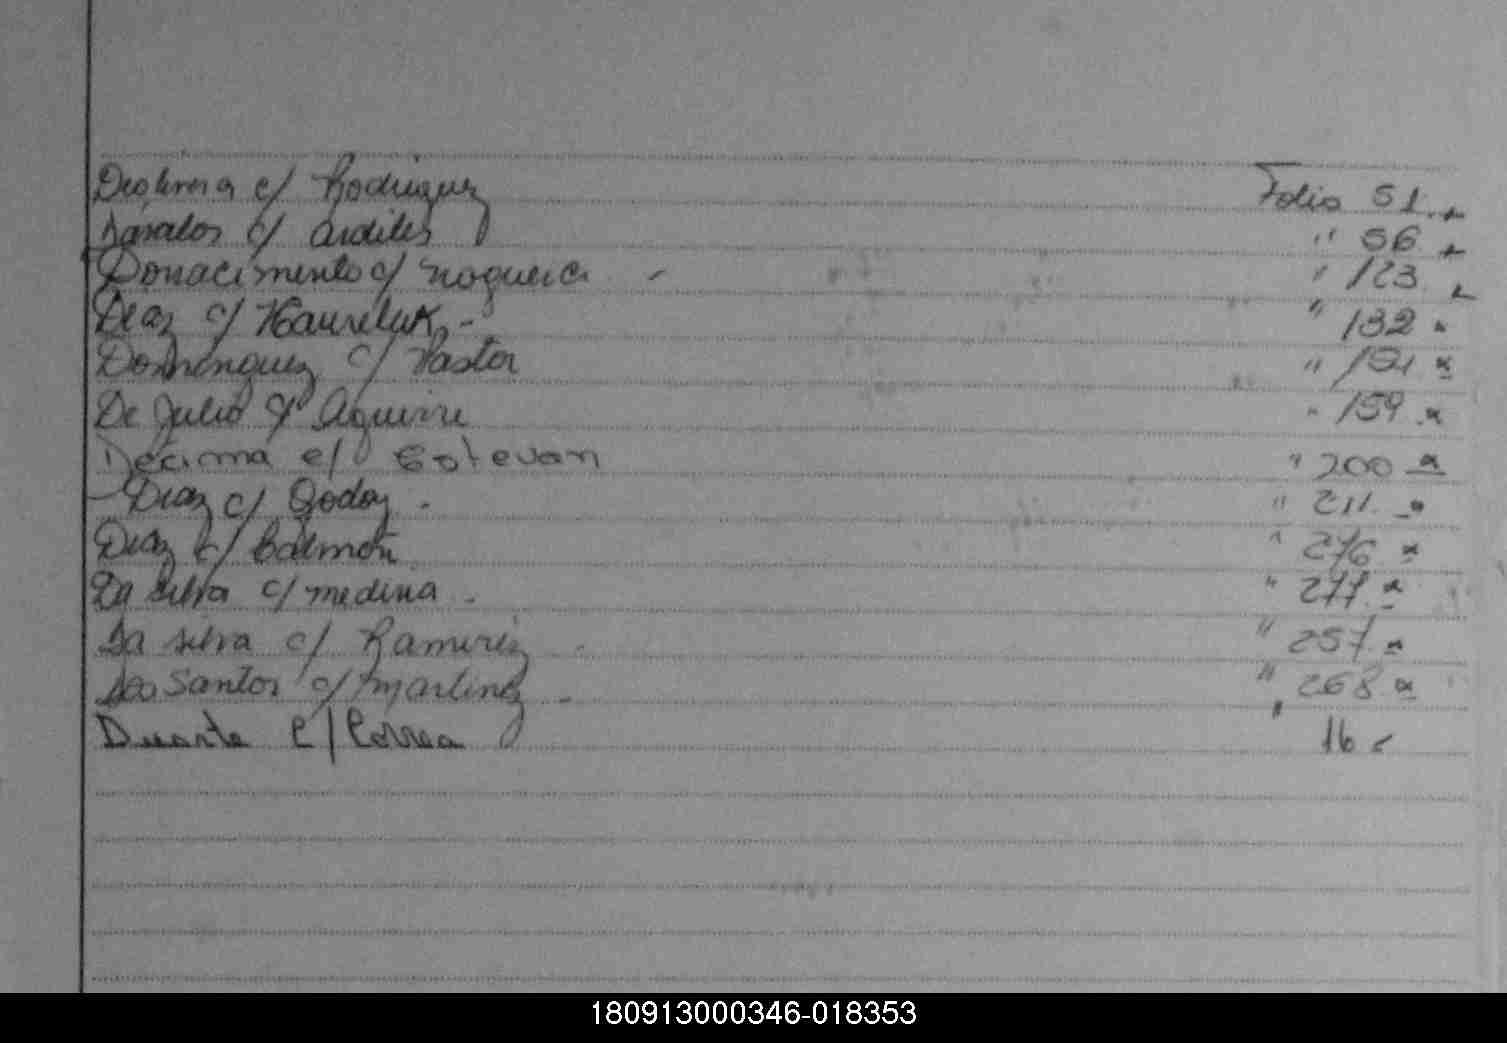 Deolivera c/ Rodriguez Folio 51.
Davalos c/ Ardiles " 56
Donacimento c/ Noguera " 123
Diaz c/ Haureluk " 132
Dominguez c/ Pastor " 151
De Julio c/ Aguirre " 159
Decima c/ Estevan " 200
Diaz c/ Godoy " 211
Diaz c/ Balmon " 276
Da silva c/ medina " 277
Da silva c/ Ramirez " 257
Dos Santos c/ martinez " 268
Duarte c/ Correa 16
180913000346-018353